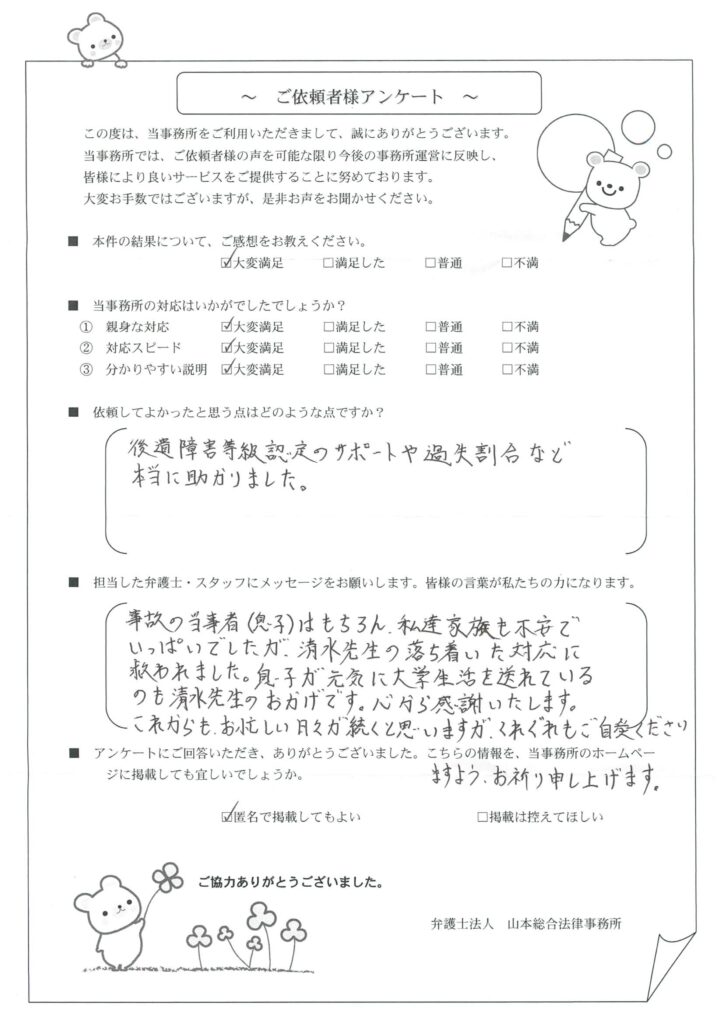 ～ ご依頼者様アンケート ～
この度は、当事務所をご利用いただきまして、誠にありがとうございます。
当事務所では、ご依頼者様の声を可能な限り今後の事務所運営に反映し、
皆様により良いサービスをご提供することに努めております。
大変お手数ではございますが、是非お声をお聞かせください。
■ 本件の結果について、ご感想をお教えください。
☑大変満足 □満足した □普通 □不満
■ 当事務所の対応はいかがでしたでしょうか？
① 親身な対応 ☑大変満足 □満足した □普通 □不満
② 対応スピード ☑大変満足 □満足した □普通 □不満
③ 分かりやすい説明 ☑大変満足 □満足した □普通 □不満
■ 依頼してよかったと思う点はどのような点ですか？
後遺障害等級認定のサポートや過失割合など
本当に助かりました。
■ 担当した弁護士・スタッフにメッセージをお願いします。皆様の言葉が私たちの力になります。
事故の当事者(息子)はもちろん、私達家族も不安で
いっぱいでしたが、清水先生の落ち着いた対応に
救われました。息子が元気に大学生活を送れている
のも清水先生のおかげです。心から感謝いたします。
これからも、お忙しい日々が続くと思いますが、くれぐれもご自愛ください
ますよう、お祈り申し上げます。
■ アンケートにご回答いただき、ありがとうございました。こちらの情報を、当事務所のホームペー
ジに掲載しても宜しいでしょうか。
☑匿名で掲載してもよい □掲載は控えてほしい
ご協力ありがとうございました。
弁護士法人 山本総合法律事務所